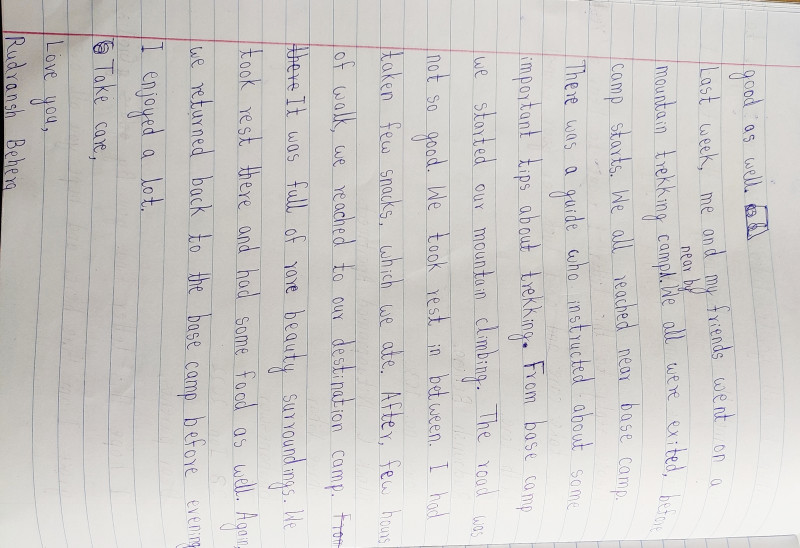 good as well.
Last week, me and my friends went on a
mountain trekking camp near by. We all were exited, before
camp starts. We all reached near base camp.
There was a guide who instructed about some
important tips about trekking. From base camp
we started our mountain climbing. The road was
not so good. We took rest in between. I had
taken few snacks, which we ate. After, few hours
of walk, we reached to our destination camp. From
there It was full of rare beauty surroundings. We
took rest there and had some food as well. Again,
we returned back to the base camp before evening
I enjoyed a lot.
Take care,
Love you,
Rudransh Behera